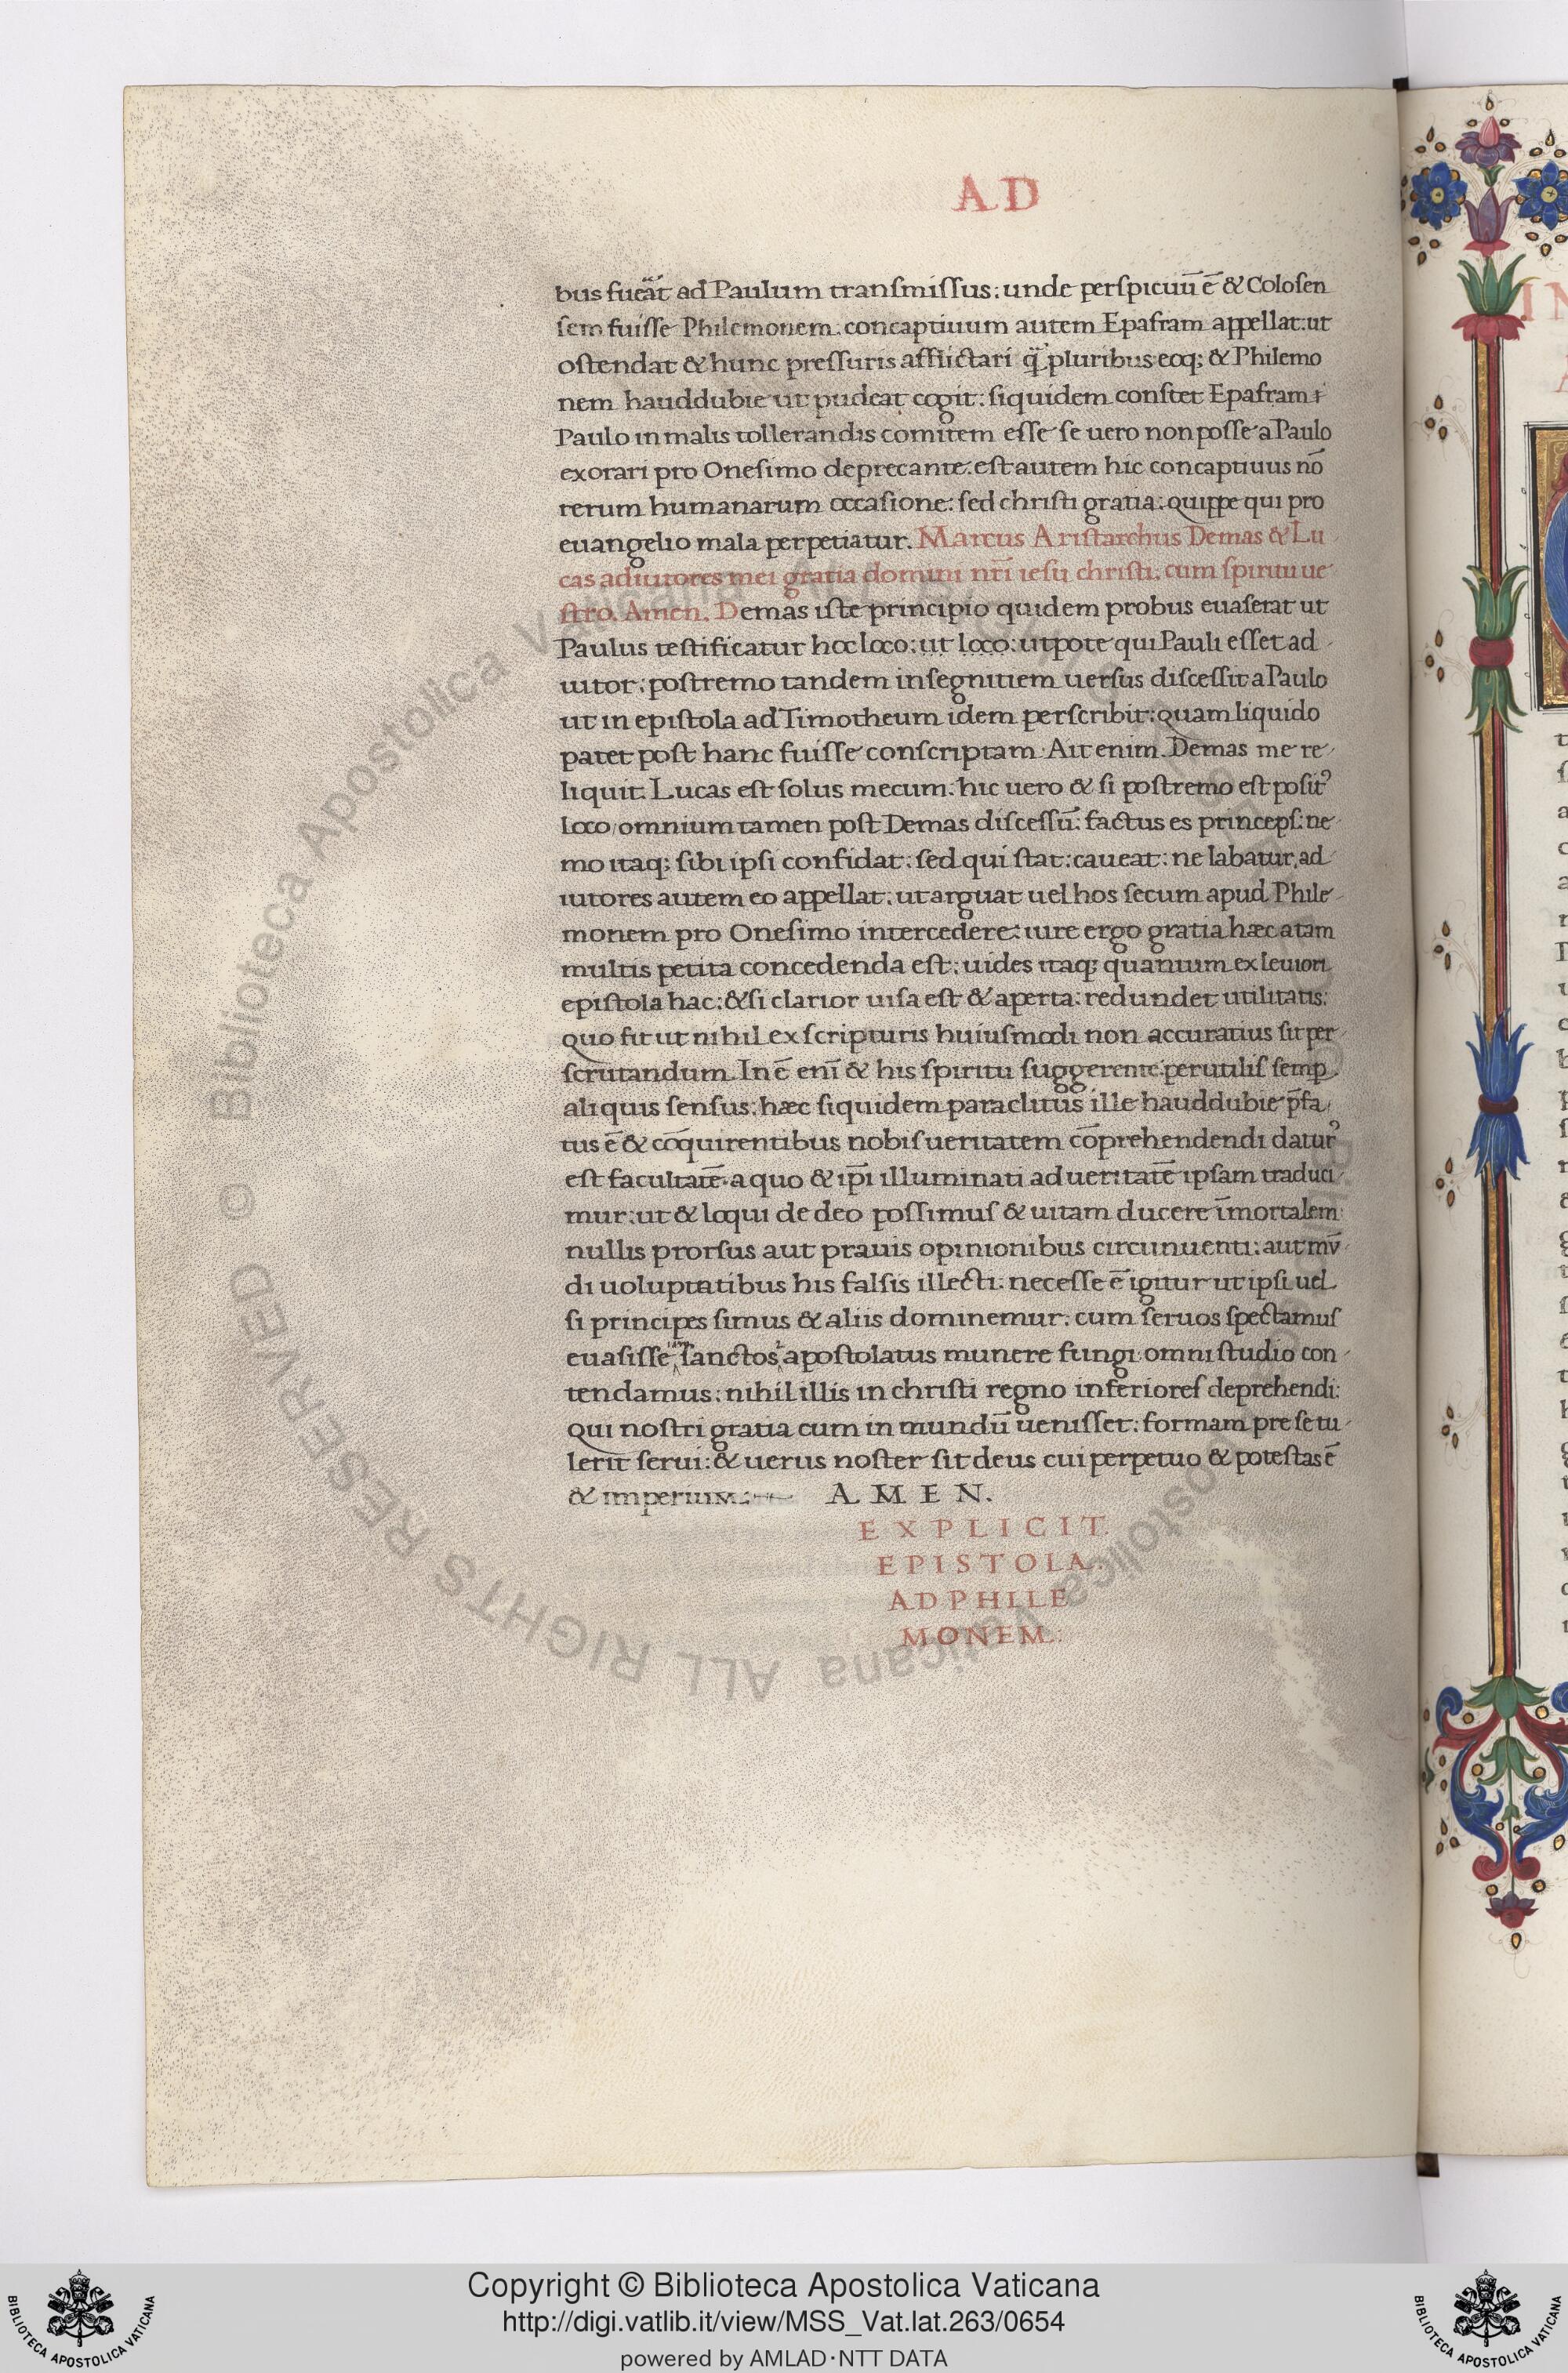 AD
bus fueāt ad Paulum transmissus: unde perspicuū ē & Colosen
sem fuisse Philemonem. concaptiuum autem Epafram appellat: ut
ostendat & hunc pressuris afflictari q̄ pluribus eoq; & Philemo
nem hauddubie ut pudeat cogit: siquidem constet Epafram
Paulo in malis tollerandis comitem esse se uero non posse a Paulo
exorari pro Onesimo deprecante. est autem hic concaptiuus nō
rerum humanarum occasione: sed christi gratia: quippe qui pro
euangelio mala perpetiatur. Marcus Aristarchus Demas & Lu
cas adiutores mei gratia domini nr̄i iesu christi. cum spiritu ue
stro. Amen. Demas iste principio quidem probus euaserat ut
Paulus testificatur hoc loco: ut loco: utpote qui Pauli esset ad
iutor: postremo tandem in segnitiem uersus discessit a Paulo
ut in epistola ad Timotheum idem perscribit: quam liquido
patet post hanc fuisse conscriptam. Ait enim. Demas me re
liquit. Lucas est solus mecum. hic uero & si postremo est posit᾽
loco/ omnium tamen post Demas discessū: factus es princeps: ne
mo itaq; sibi ipsi confidat: sed qui stat: caueat: ne labatur. ad
iutores autem eo appellat: ut arguat uel hos secum apud Phile
monem pro Onesimo intercedere: iure ergo gratia hæc a tam
multis petita concedenda est: uides itaq; quantum ex leuiori
epistola hac: & si clarior uisa est & aperta: redundet utilitatis:
quo fit ut nihil ex scripturis huiusmodi non accuratius sit per
scrutandum. In ē enī & his spiritu suggerente perutilis semp
aliquis sensus: hæc siquidem paraclitus ille hauddubie p̄fa
tus ē & cōquirentibus nobis ueritatem cōprehendendi datur᾽
est facultatē. a quo & ip̄i illuminati ad ueritatē ipsam traduci
mur: ut & loqui de deo possimus & uitam ducere īmortalem
nullis prorsus aut prauis opinionibus circunuenti: aut mū
di uoluptatibus his falsis illecti. necesse ē igitur ut ipsi uel
si principes simus & aliis dominemur. cum seruos spectamus
euasisse sanctos apostolatus munere fungi omni studio con
tendamus: nihil illis in christi regno inferiores deprehendi:
qui nostri gratia cum in mundū uenisset: formam pre se tu
lerit serui: & uerus noster sit deus cui perpetuo & potestas ē
& imperium: AMEN.
EXPLICIT.
EPISTOLA.
AD PHILE
MONEM.
© Biblioteca Apostolica Vaticana ALL RIGHTS RESERVED
Copyright © Biblioteca Apostolica Vaticana
http://digi.vatlib.it/view/MSS_Vat.lat.263/0654
powered by AMLAD·NTT DATA
BIBLIOTECA APOSTOLICA VATICANA
BIBLIOTECA APOSTOLICA VATICANA